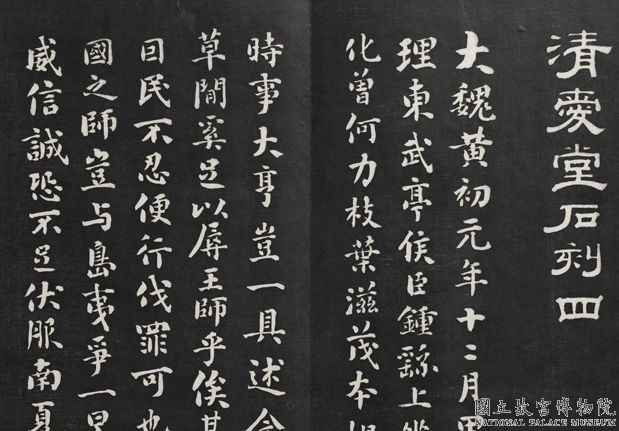 清愛堂石刻四
大魏黃初元年十二月
理東武亭侯臣鍾繇上
化曾何力枝葉滋茂本根
時事大亨豈一具述
草閒奚足以辱王師乎俟其
日民不忍便行伐罪可也
國之師豈与島夷爭一旦
威信誠恐不足伏服南夏
國立故宮博物院
NATIONAL PALACE MUSEUM